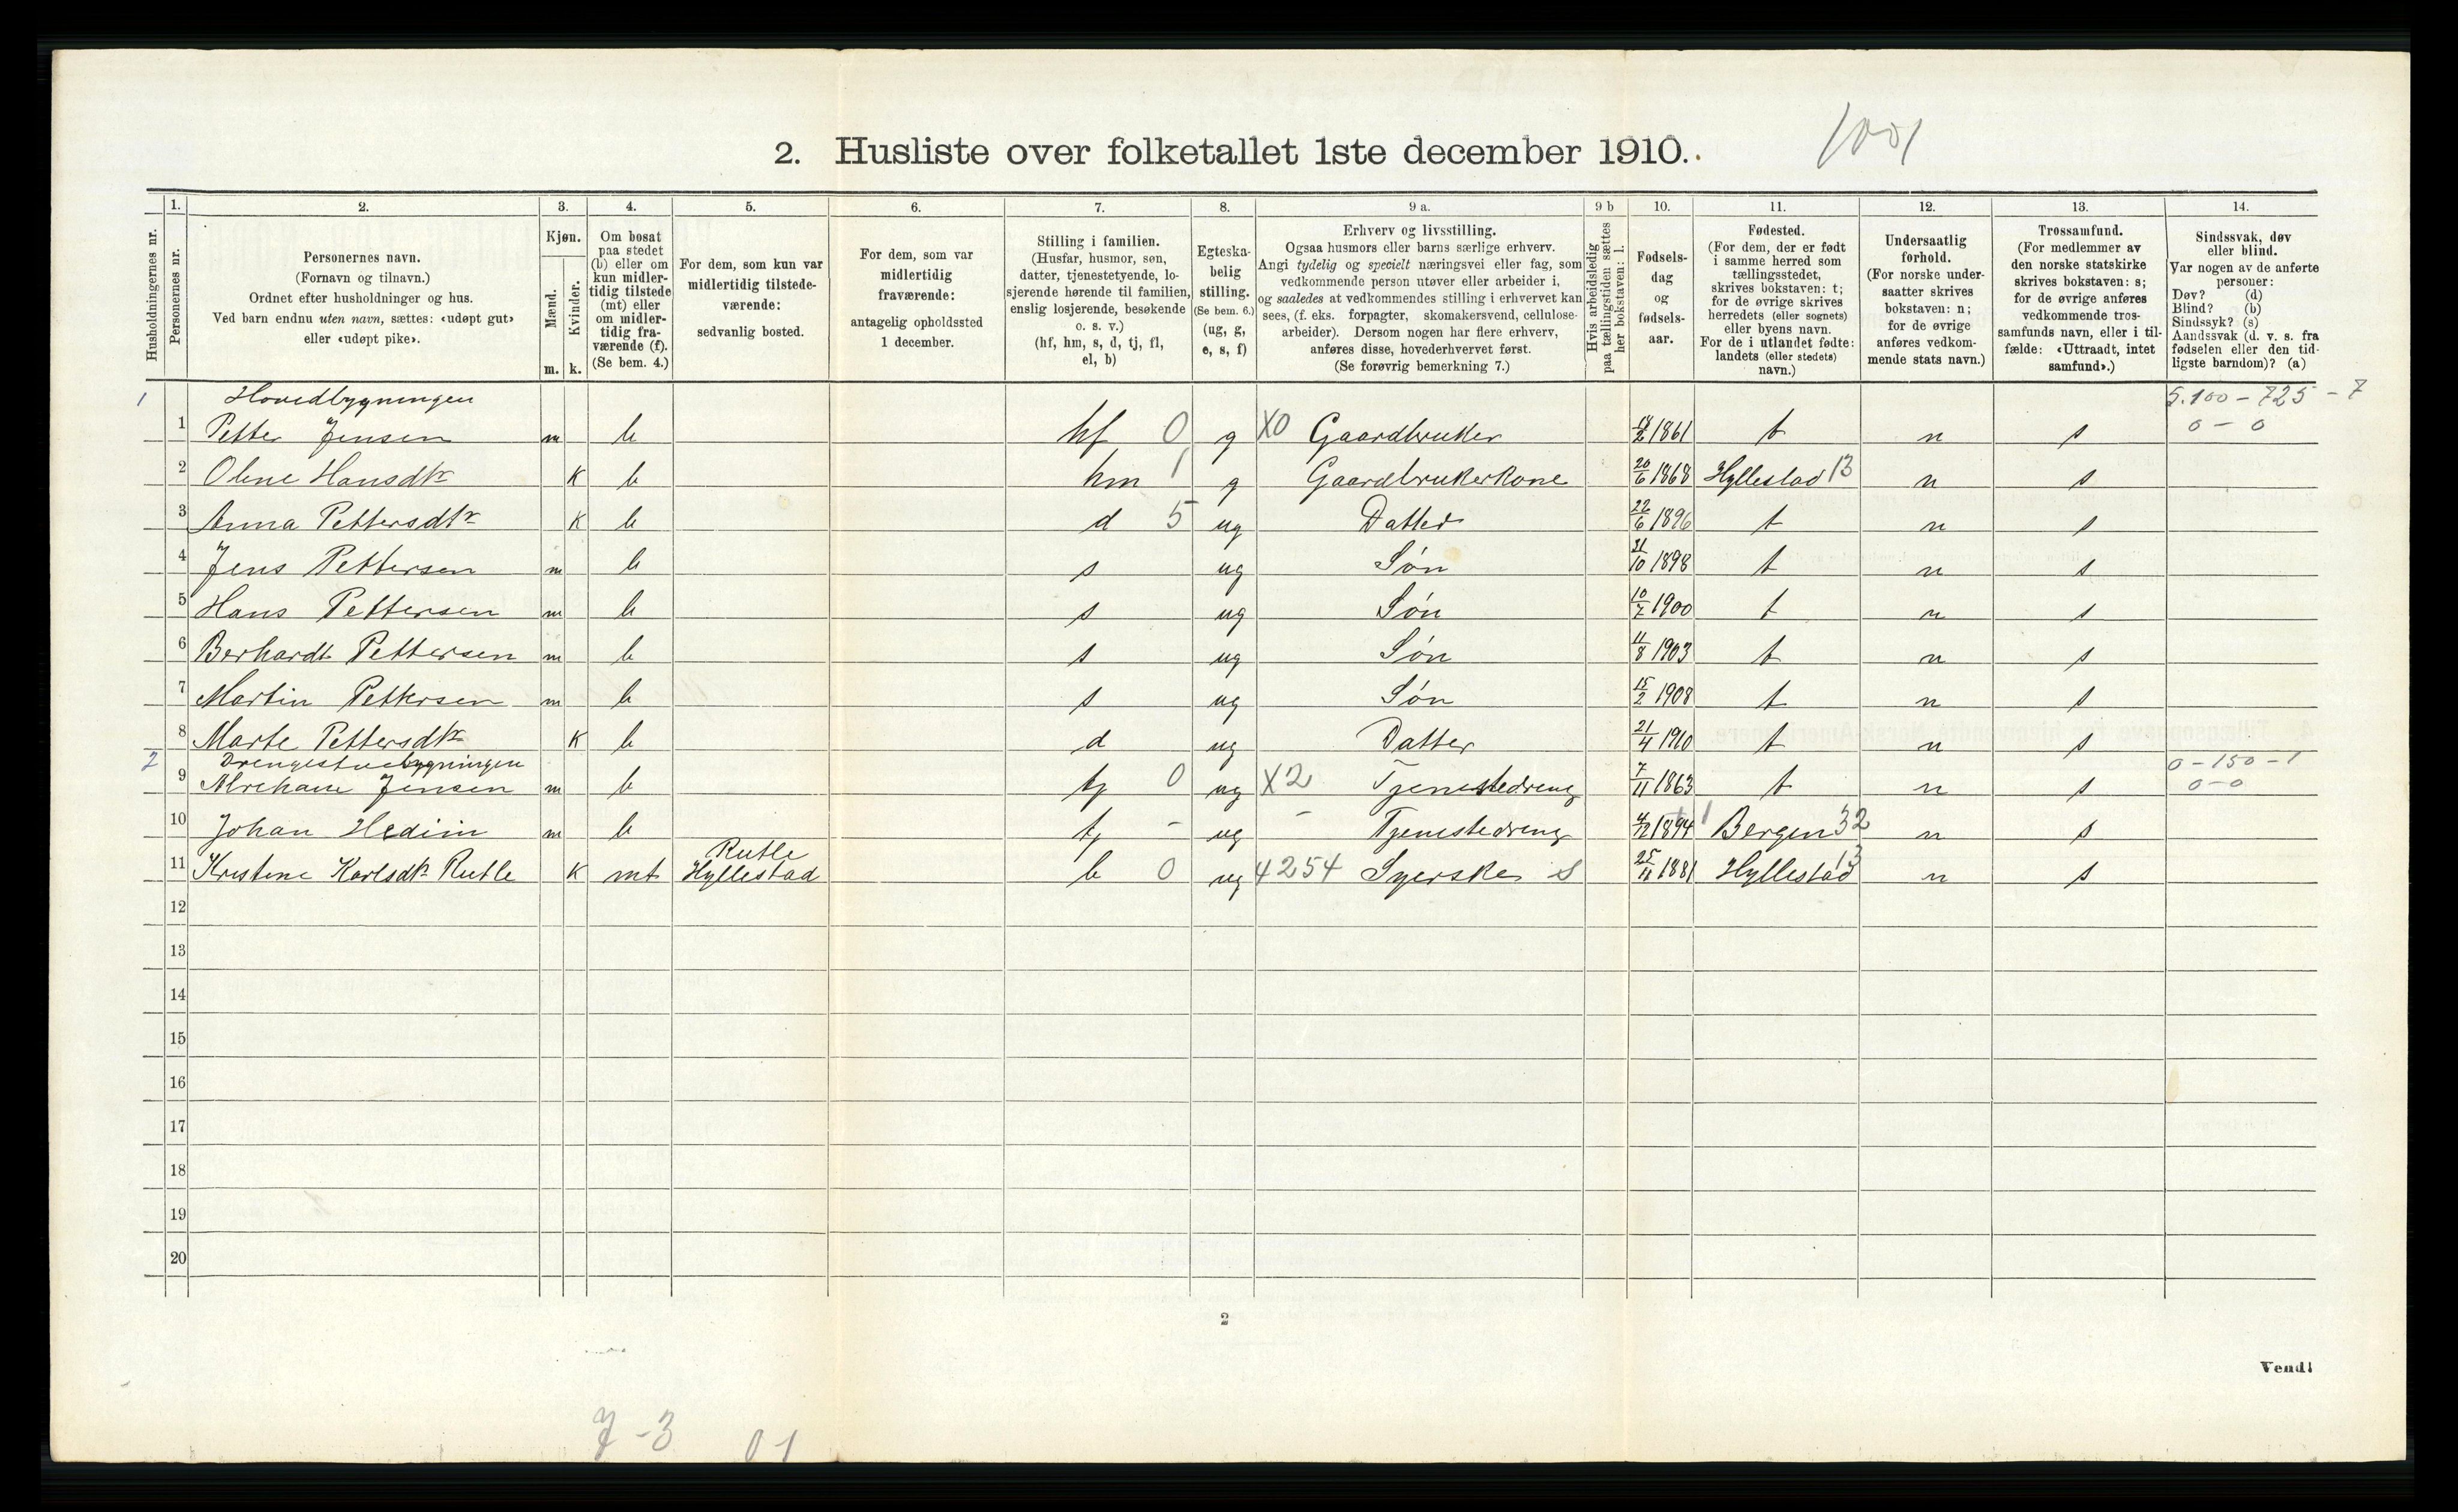 2. Husliste over folketallet 1ste december 1910.
1001
Husholdningernes nr.
1.
Personernes nr.
2.
Personernes navn.
(Fornavn og tilnavn.)
Ordnet efter husholdninger og hus.
Ved barn endnu uten navn, sættes: «udøpt gut»
eller «udøpt pike».
3.
Kjøn.
Mænd.
Kvinder.
m. k.
4.
Om bosat
paa stedet
(b) eller om
kun midler-
tidig tilstede
(mt) eller
om midler-
tidig fra-
værende (f).
(Se bem. 4.)
5.
For dem, som kun var
midlertidig tilstede-
værende:
sedvanlig bosted.
6.
For dem, som var
midlertidig
fraværende:
antagelig opholdssted
1 december.
7.
Stilling i familien.
(Husfar, husmor, søn,
datter, tjenestetyende, lo-
sjerende hørende til familien,
enslig losjerende, besøkende
o. s. v.)
(hf, hm, s, d, tj, fl,
el, b)
8.
Egteska-
belig
stilling.
(Se bem. 6.)
(ug, g,
e, s, f)
9 a.
Erhverv og livsstilling.
Ogsaa husmors eller barns særlige erhverv.
Angi tydelig og specielt næringsvei eller fag, som
vedkommende person utøver eller arbeider i,
og saaledes at vedkommendes stilling i erhvervet kan
sees, (f. eks. forpagter, skomakersvend, cellulose-
arbeider). Dersom nogen har flere erhverv,
anføres disse, hovederhvervet først.
(Se forøvrig bemerkning 7.)
9 b
Hvis arbeidsledig
paa tællingstiden sættes
her bokstaven: l.
10.
Fødsels-
dag
og
fødsels-
aar.
11.
Fødested.
(For dem, der er født
i samme herred som
tællingsstedet,
skrives bokstaven: t;
for de øvrige skrives
herredets (eller sognets)
eller byens navn.
For de i utlandet fødte:
landets (eller stedets)
navn.)
12.
Undersaatlig
forhold.
(For norske under-
saatter skrives
bokstaven: n;
for de øvrige
anføres vedkom-
mende stats navn.)
13.
Trossamfund.
(For medlemmer av
den norske statskirke
skrives bokstaven: s;
for de øvrige anføres
vedkommende tros-
samfunds navn, eller i til-
fælde: «Uttraadt, intet
samfund».)
14.
Sindssvak, døv
eller blind.
Var nogen av de anførte
personer:
Døv? (d)
Blind? (b)
Sindssyk? (s)
Aandssvak (d. v. s. fra
fødselen eller den tid-
ligste barndom)? (a)
1 Hovedbygningen 5.100 - 725 - 7
1 Petter Jensen m b hf 0 g X0 Gaardbruker 18/2 1861 t n s 0 - 0
2 Oline Hansdtr k b hm 1 g Gaardbrukerkone 20/6 1868 Hyllestad 13 n s
3 Anna Pettersdtr k b d 5 ug Datter 26/6 1896 t n s
4 Jens Pettersen m b s ug Søn 31/10 1898 t n s
5 Hans Pettersen m b s ug Søn 10/7 1900 t n s
6 Berhardt Pettersen m b s ug Søn 11/8 1903 t n s
7 Martin Pettersen m b s ug Søn 15/2 1908 t n s
8 Marte Pettersdtr k b d ug Datter 21/4 1910 t n s
2 Drengestuebygningen 0 - 150 - 1
9 Jensen m b tj 0 ug X2 Tjenestedreng 7/11 1863 t n s 0 - 0
10 Johan m b tj - ug - Tjenestedreng 4/12 1894 1 Bergen 32 n s
Rutle
11 Kristine Karlsdtr Rutle k mt Hyllestad b 0 ug 4254 Syerske s 25/11 1881 Hyllestad 13 n s
12
13
14
15
16
17
18
19
20
2
Vend!
7 - 3 0 1